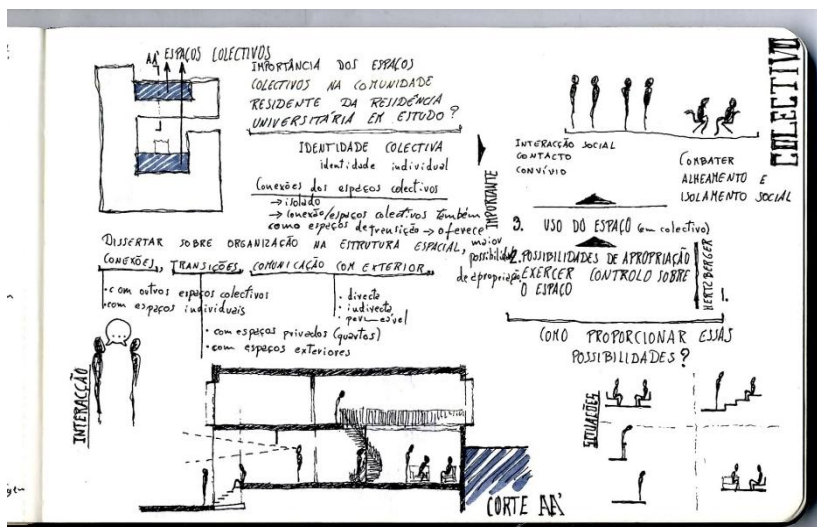 AA' ESPAÇOS COLECTIVOS
IMPORTÂNCIA DOS ESPAÇOS
COLECTIVOS NA COMUNIDADE
RESIDENTE DA RESIDÊNCIA
UNIVERSITÁRIA EM ESTUDO?
IDENTIDADE COLECTIVA
identidade individual
Conexões dos espaços colectivos
→ isolado
→ conexão/espaços colectivos também
como espaços de transição → oferece
maior
possibilidade
de apropriação
DISSERTAR SOBRE ORGANIZAÇÃO NA ESTRUTURA ESPACIAL,
CONEXÕES, TRANSIÇÕES, COMUNICAÇÃO COM EXTERIOR.
• com outros espaços colectivos
• com espaços individuais
• com espaços privados (quartos)
• com espaços exteriores
• directa
• indirecta
• permeável
INTERACÇÃO
CORTE AA'
COLECTIVO
INTERACÇÃO SOCIAL
CONTACTO
CONVÍVIO
COMBATER
ALHEAMENTO E
ISOLAMENTO SOCIAL
IMPORTANTE
3. USO DO ESPAÇO (em colectivo)
2. POSSIBILIDADES DE APROPRIAÇÃO
EXERCER CONTROLO SOBRE
O ESPAÇO
HERTZBERGER
1.
COMO PROPORCIONAR ESSAS
POSSIBILIDADES?
SITUAÇÕES